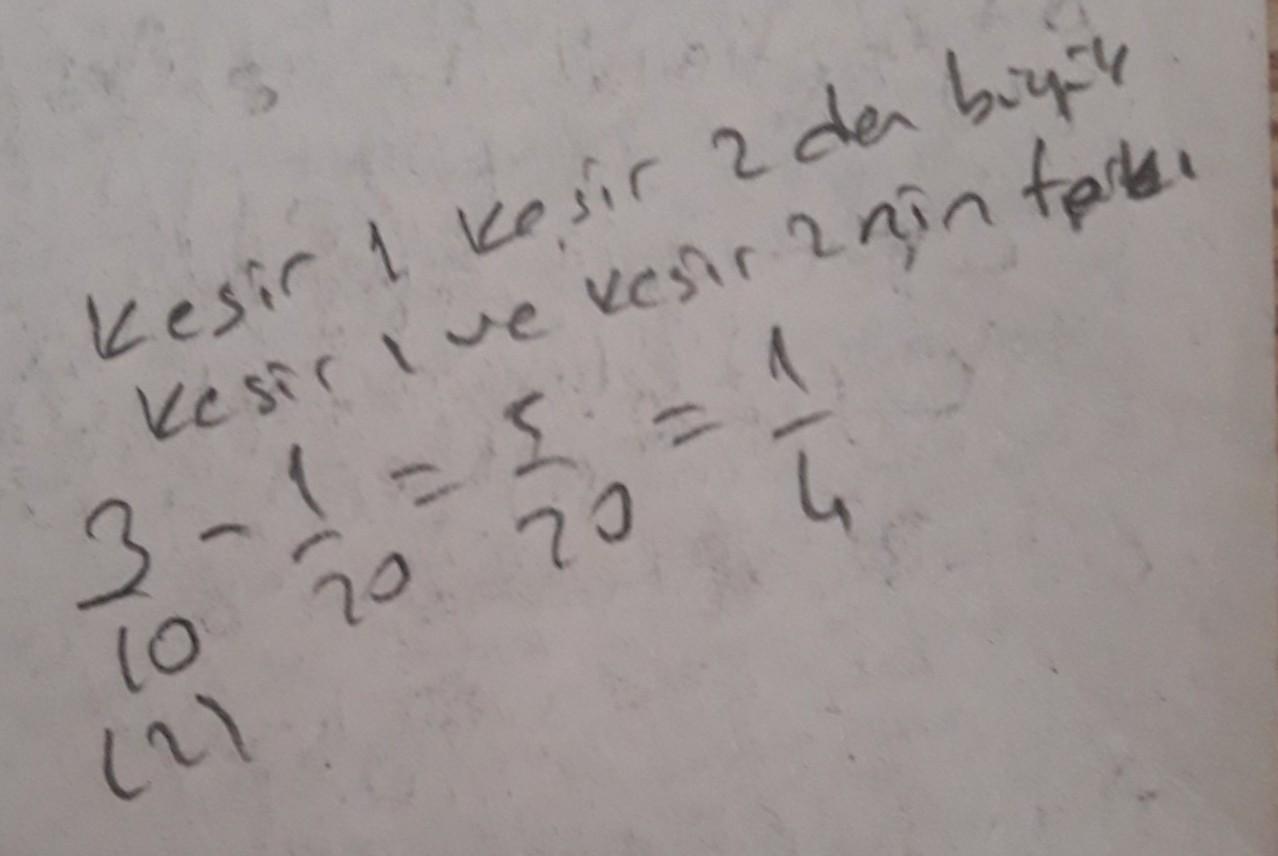 Kesir 1 kesir 2 den büyük
Kesir 1 ve kesir 2 nin farkı
3/10 - 1/20 = 5/20 = 1/4
(2)